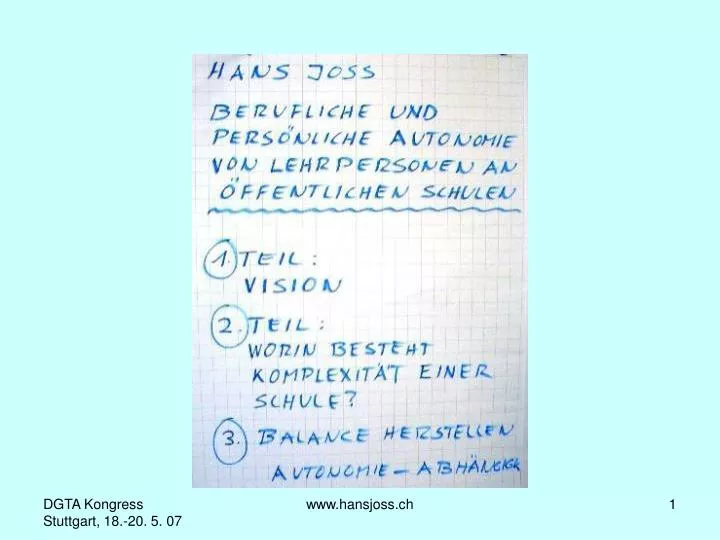 HANS JOSS
BERUFLICHE UND
PERSÖNLICHE AUTONOMIE
VON LEHRPERSONEN AN
ÖFFENTLICHEN SCHULEN
1. TEIL:
VISION
2. TEIL:
WORIN BESTEHT
KOMPLEXITÄT EINER
SCHULE?
3. BALANCE HERSTELLEN
AUTONOMIE –
DGTA Kongress
Stuttgart, 18.-20. 5. 07
www.hansjoss.ch
1